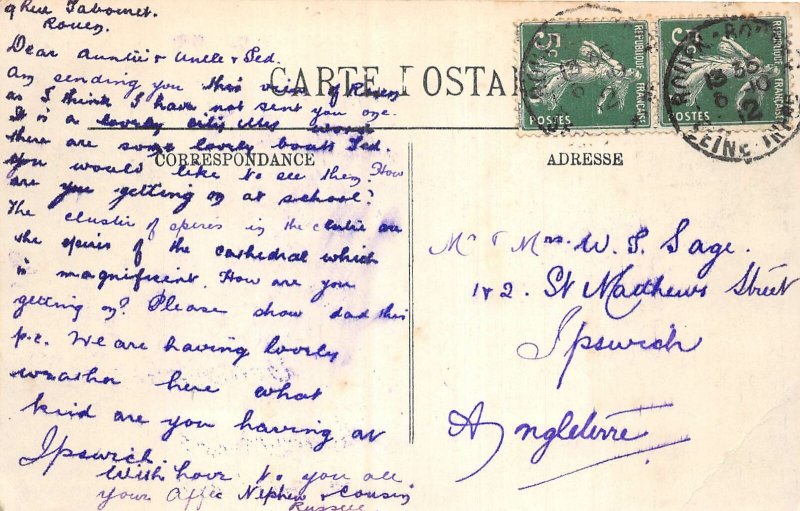 9 Rue Tabouret.
Rouen.
Dear Auntie & Uncle & Ted.
Am sending you this view of Rouen
as I think I have not sent you one.
It is a lovely city
there are some lovely boats Ted.
You would like to see them. How
are you getting on at school?
The cluster of spires in the centre are
the spires of the cathedral which
is magnificent. How are you
getting on? Please show dad this
p.c. We are having lovely
weather here what
kind are you having at
Ipswich.
With love to you all.
your Affec Nephew & Cousin,
Russell
CARTE POSTALE
CORRESPONDANCE
ADRESSE
REPUBLIQUE FRANÇAISE
5c
POSTES
REPUBLIQUE FRANÇAISE
5c
POSTES
ROUEN
13 35
6 10
12
SEINE INF
Mr & Mrs. W. S. Sage.
182. St Matthews Street
Ipswich
Angleterre